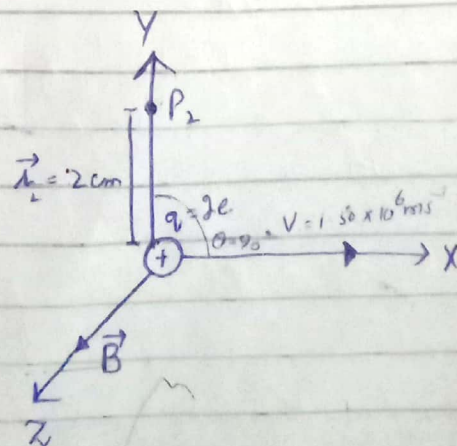 Y
P₂
r⃗₂ = 2 cm
q = 2e
θ=90° V = 1.50 × 10⁶ ms⁻
+
X
B⃗
Z